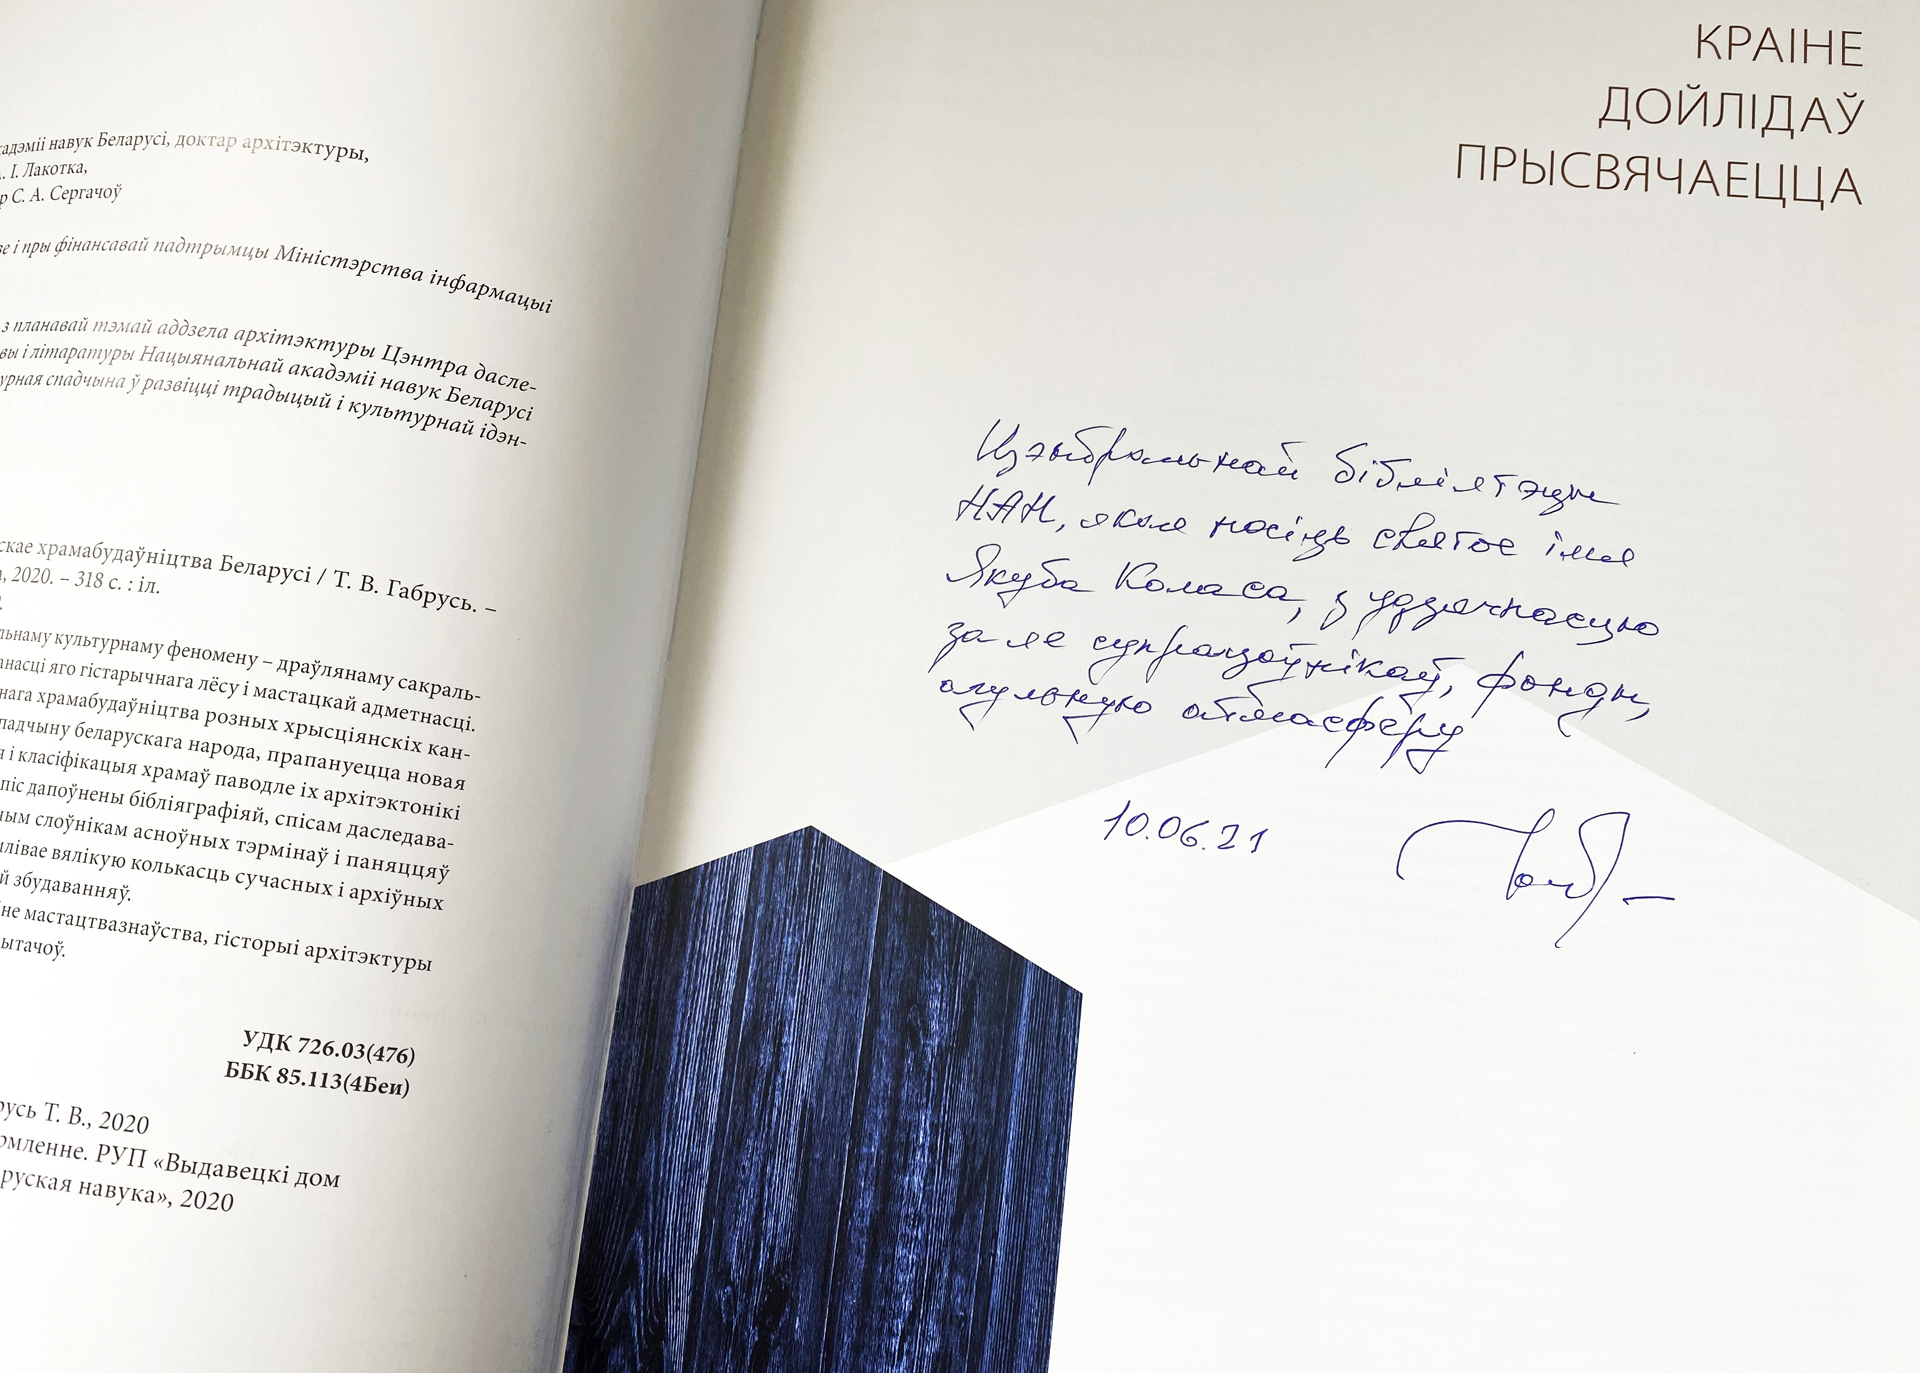 кадэміі навук Беларусі, доктар архітэктуры,
І. Лакотка,
р С. А. Сергачоў
е і пры фінансавай падтрымцы Міністэрства інфармацыі
з планавай тэмай аддзела архітэктуры Цэнтра дасле-
вы і літаратуры Нацыянальнай акадэміі навук Беларусі
урная спадчына ў развіцці традыцый і культурнай ідэн-
скае храмабудаўніцтва Беларусі / Т. В. Габрусь. –
, 2020. – 318 с. : іл.
льнаму культурнаму феномену – драўлянаму сакраль-
анасці яго гістарычнага лёсу і мастацкай адметнасці.
нага храмабудаўніцтва розных хрысціянскіх кан-
падчыну беларускага народа, прапануецца новая
я і класіфікацыя храмаў паводле іх архітэктонікі
піс дапоўнены бібліяграфіяй, спісам даследава-
ным слоўнікам асноўных тэрмінаў і паняццяў
лівае вялікую колькасць сучасных і архіўных
й збудаванняў.
не мастацтвазнаўства, гісторыі архітэктуры
ытачоў.
УДК 726.03(476)
ББК 85.113(4Беи)
русь Т. В., 2020
рмленне. РУП «Выдавецкі дом
руская навука», 2020
КРАІНЕ
ДОЙЛІДАЎ
ПРЫСВЯЧАЕЦЦА
Цэнтральнай бібліятэцы
НАН, якая носіць святое імя
Якуба Коласа, з удзячнасцю
за яе супрацоўнікаў, фонды,
агульную атмасферу
10.06.21